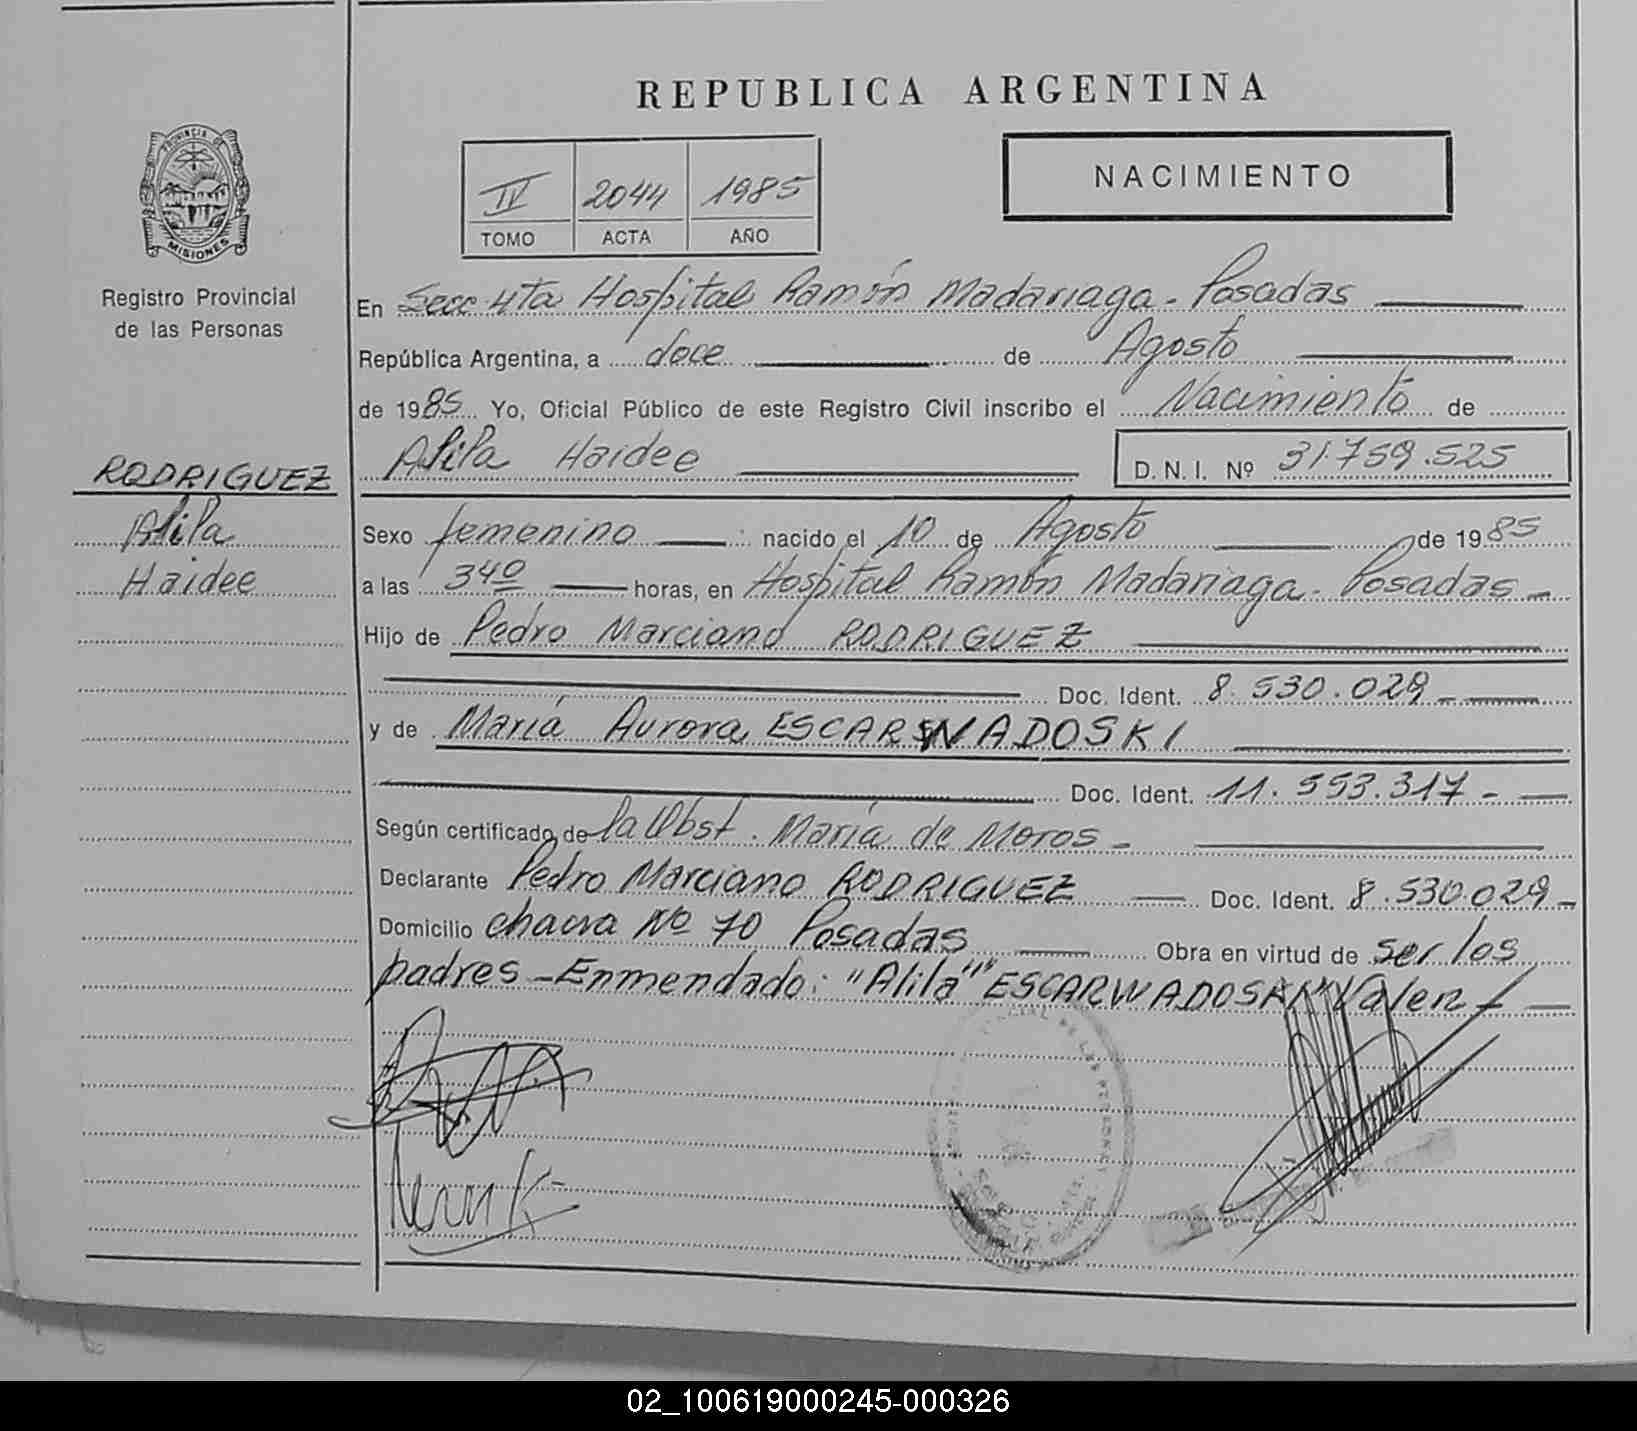 REPUBLICA ARGENTINA
PROVINCIA DE
MISIONES
Registro Provincial
de las Personas
NACIMIENTO
IV 2044 1985
TOMO ACTA AÑO
En Secc 4ta Hospital Ramón Madariaga - Posadas
República Argentina, a doce de Agosto
de 1985 Yo, Oficial Público de este Registro Civil inscribo el Nacimiento de
Alila Haidee D. N. I. Nº 31.759.525
RODRIGUEZ
Alila
Haidee
Sexo femenino : nacido el 10 de Agosto de 1985
a las 340 horas, en Hospital Ramón Madariaga - Posadas -
Hijo de Pedro Marciano RODRIGUEZ
Doc. Ident. 8.530.029 -
y de María Aurora ESCARWADOSKI
Doc. Ident. 11.553.317 -
Según certificado de la Obst. María de Moros -
Declarante Pedro Marciano RODRIGUEZ Doc. Ident. 8.530.029 -
Domicilio chacra Nº 70 Posadas Obra en virtud de ser los
padres - Enmendado: "Alila" "ESCARWADOSKI" Valen -
02_100619000245-000326